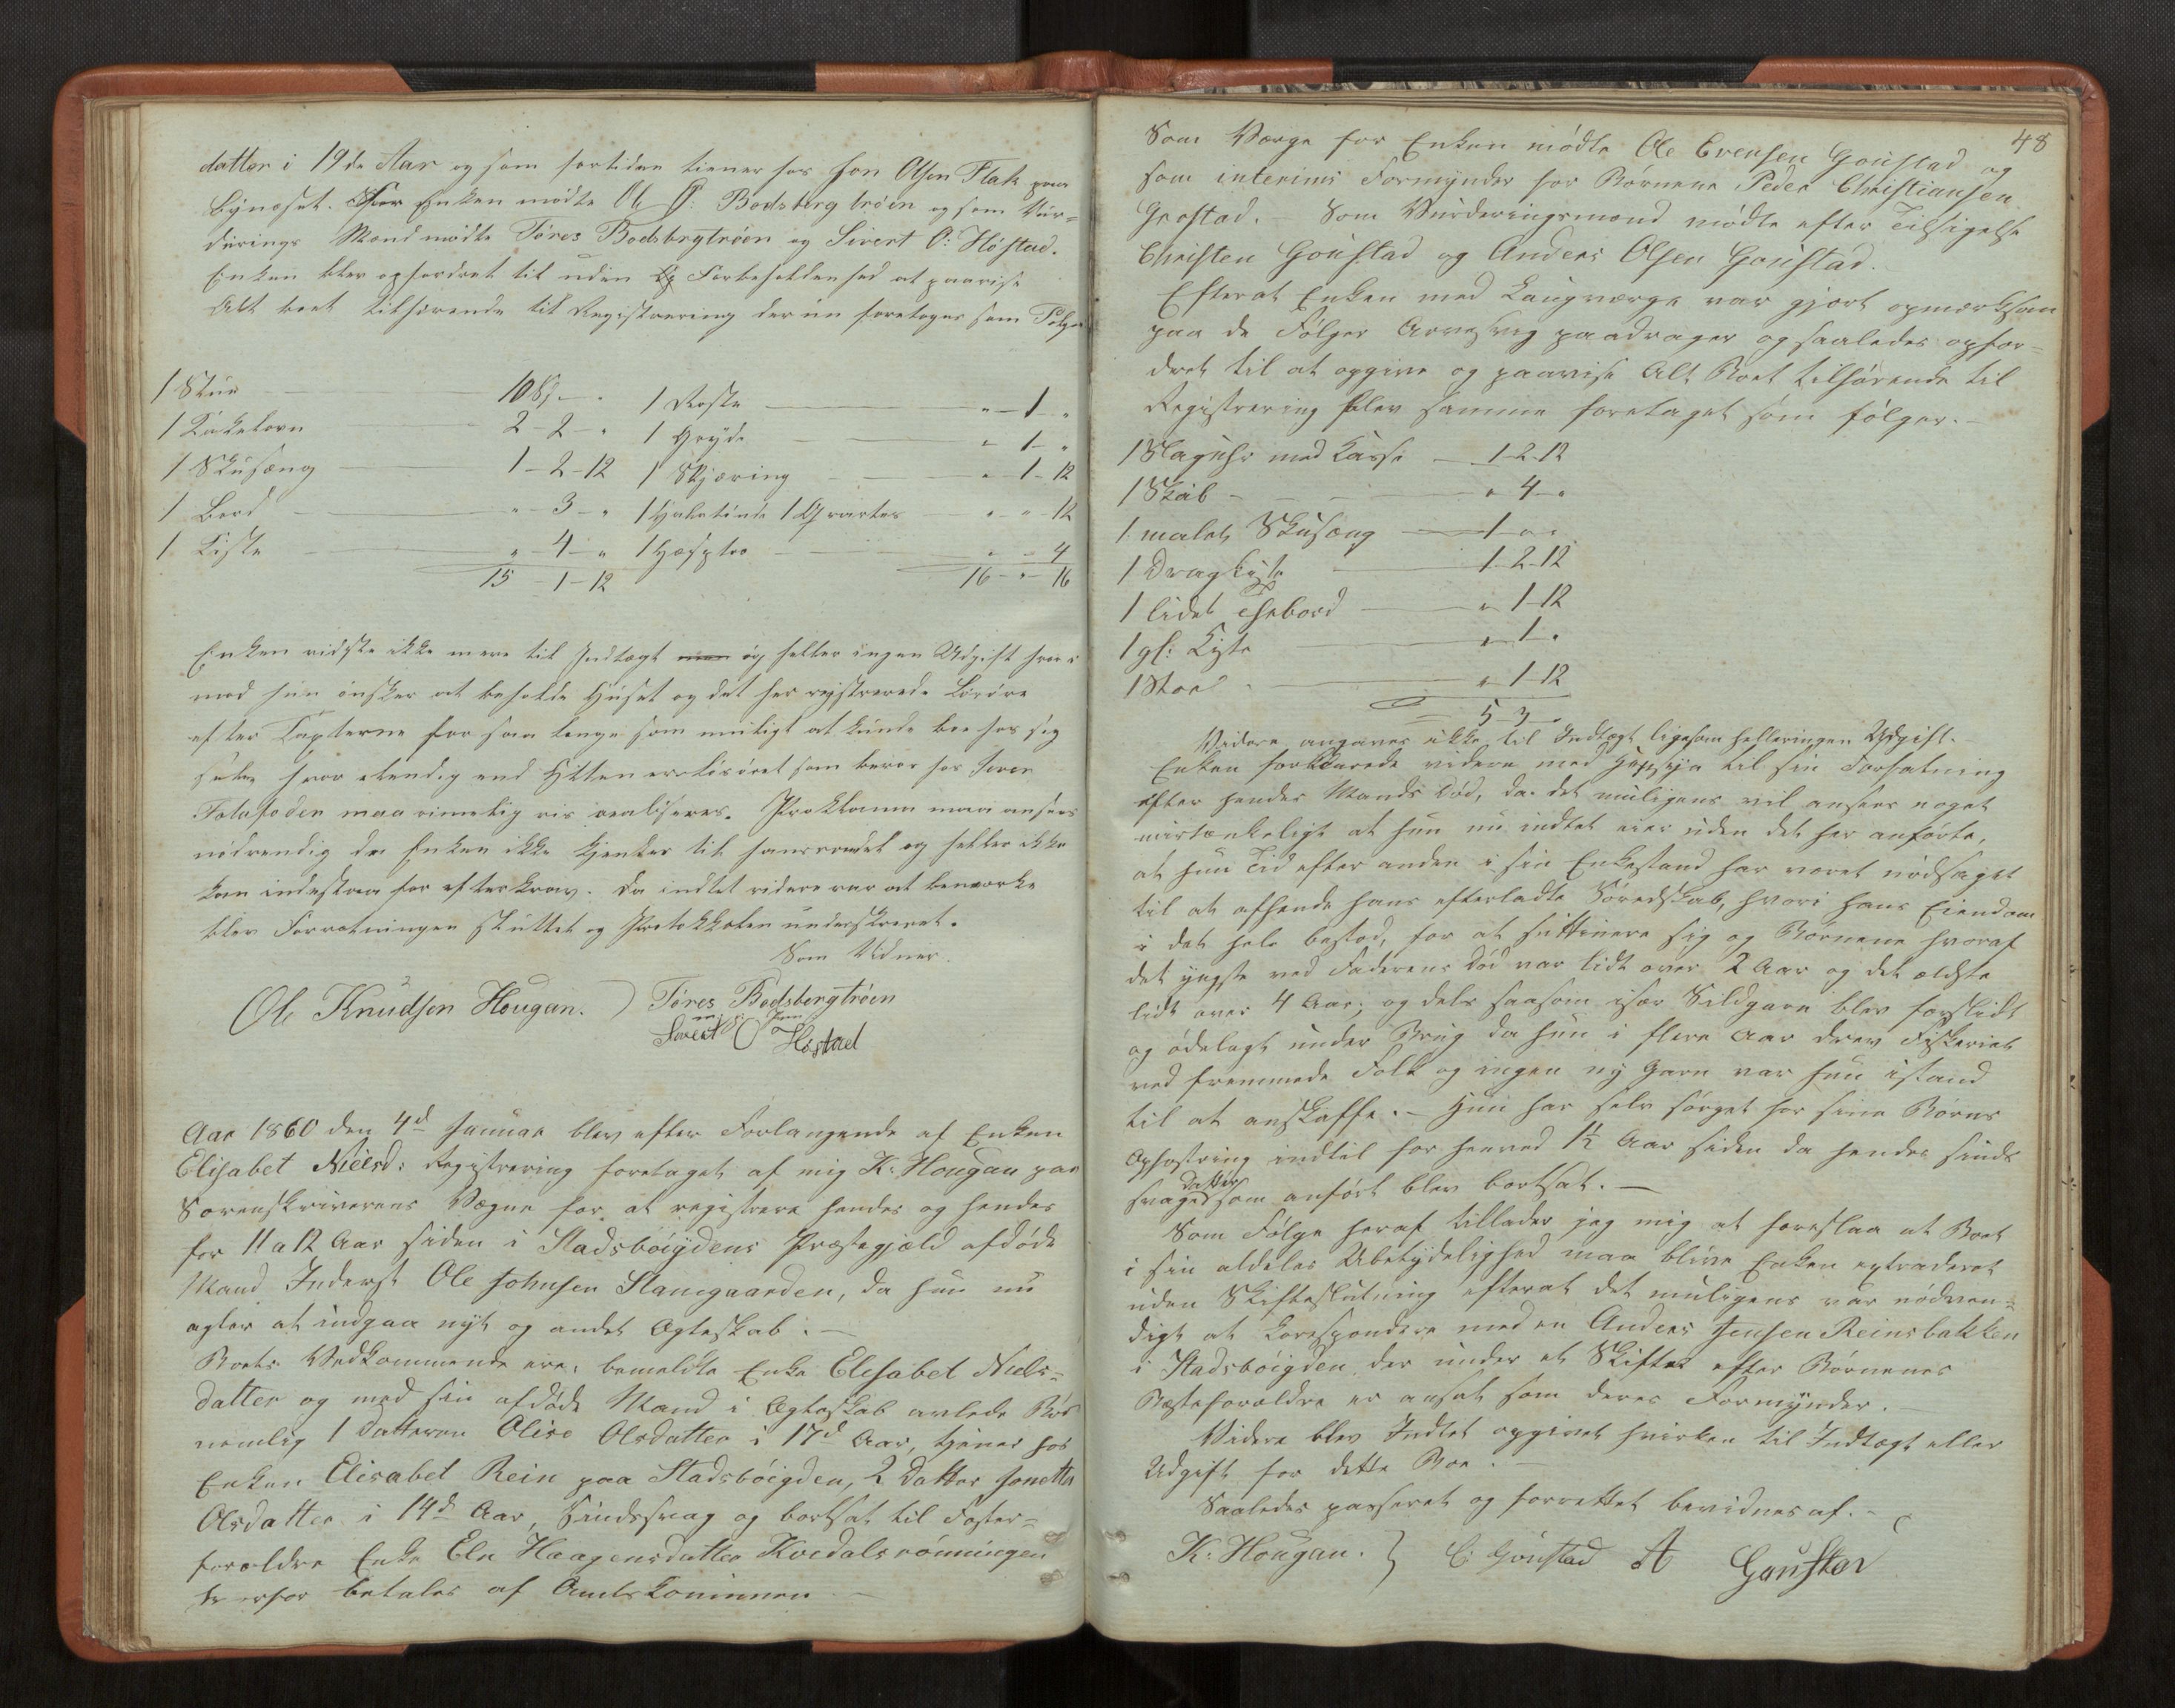 datter i 19de Aar og som fortiden tiener hos Jon Olsen Flak paa
Bynæset. For Enken mødte Ole O: Bodsberg trøen og som Vur-
derings Mænd mødte Tøres Bodsbrgtrøen og Sivert O: Høstad.
Enken blev opfordret til uden Forbeholdenhed at paavise
Alt boet tilhørende til Registrering der nu foretoges som Følger
1 Stue 10 Spd - " 1 Roste " - 1 - "
1 Kakelovn 2 - 2 - " 1 Gryde " - 1 - "
1 Skusæng 1 - 2 - 12 1 Skjæring " - 1 - 12
1 Bord " - 3 - " 1 Halvtønde 1 Qvarter " - " - 12
1 Kiste " - 4 - " 1 Hesptræ " - - 4
15 1 - 12 16 - " - 16
Enken vidste ikke mere til Indtægt og heller ingen Udgift hvor i
mod hun ønsker at beholde Huset og det her rejstrerede Løsøre
efter Taxterne for saa længe som muligt at kunde boe for sig
selv
Folafoden maa rimelig vis realiseres. Proklama maa ansees
nødvendig da Enken ikke kjender til og heller ikke
kan indestaa for efterkrav. Da indtet videre var at bemærke
blev Forretningen sluttet og Protokkolen underskrevet.
Som Vidner.
Ole Knudsen Hougan. ) Tøres Bodsbergtrøen
m. f. Pen
Sivert O Høstad
Aar 1860 den 4d Januar blev efter Forlangende af Enken
Elisabet Nielsd: Registrering foretaget af mig K: Hougan paa
Sorenskriverens Vægne for at registrere hendes og hendes
for 11 a 12 Aar siden i Stadsbøigdens Præstegjæld afdøde
Mand Inderst Ole Johnsen Stanegaarden, da hun nu
agter at indgaa nyt og andet Ægteskab. —
Boets Vedkommende ere: bemeldte Enke Elisabet Niels-
datter og med sin afdøde Mand i Ægteskab avlede Bør
nemlig 1 Datteren Olive Olsdatter i 17d Aar, tjener hos
Enken Elisabet Rein paa Stadsbøigden, 2 Datter Jonetta
Olsdatter i 14d Aar, Sindssvag og bortsat til Foster-
forældre Enke Eln Haagensdatter Kvedalsrønningen
der for betales af Amtskommunen —
48
Som Værge for Enken mødte Ole Evensen Goustad og
som interims Formynder for Børnene Peder Christiansen
Grøstad. - Som Vurderingsmænd mødte efter Tilsigelse
Christen Goustad og Anders Olsen Goustad.
Efterat Enken med Laugværge var gjort opmærksom
paa de Følger Arvesvig paadrager og saaledes opfor-
dret til at opgive og paavise Alt Boet tilhørende til
Registrering blev samme foretaget som følger. -
1 Slaguhr med Kasse — 1-2-12
1 Skab - - - " 4 - "
1 malet Skusæng — 1 - " - "
1 Dragkiste 1-2-12
1 lidet Thebord — " 1-12
1 gl: Kiste " 1 - "
1 Stoel — " 1-12
5 - 3 -
Videre angaves ikke til Indtægt ligesom heller ingen Udgift. -
Enken forklarede videre med Hensyn til sin Forfatning
efter hendes Mands Død, da det muligens vil ansees noget
mistænkeligt at hun nu indtet eier uden det her anførte,
at hun Tid efter anden i sin Enkestand har været nødsaget
til at afhende hans efterladte Søredskab, hvori hans Eiendom
i det hele bestod, for at suttinere sig og Børnene hvoraf
det yngste ved Faderens Død var lidt over 2 Aar og det ældste
lidt over 4 Aar; og dels saasom især Sildgarn blev forslidt
og ødelagt under Brug da hun i flere Aar drev Fiskeriet
ved fremmede Folk og ingen ny Garn var hun istand
til at anskaffe. - Hun har selv sørget for sine Børns
Opfostring indtil for henved 1½ Aar siden da hendes sinds
svage Datter som anført blev bortsat. —
Som Følge heraf tillader jeg mig at foreslaa at Boet
i sin aldeles Ubetydelighed maa blive Enken extraderet
uden Skifteslutning efterat det muligens var nødven-
digt at korespondere med en Anders Jensen Reinsbakken
i Stadsbøigden der under et Skiftet efter Børnenes
Bæsteforældre er ansat som deres Formynder. -
Videre blev Indtet opgivet hvirken til Indtægt eller
Udgift for dette Boe. -
Saaledes passeret og forrettet bevidnes af. -
K: Hougan. } C: Goustad A Goustad